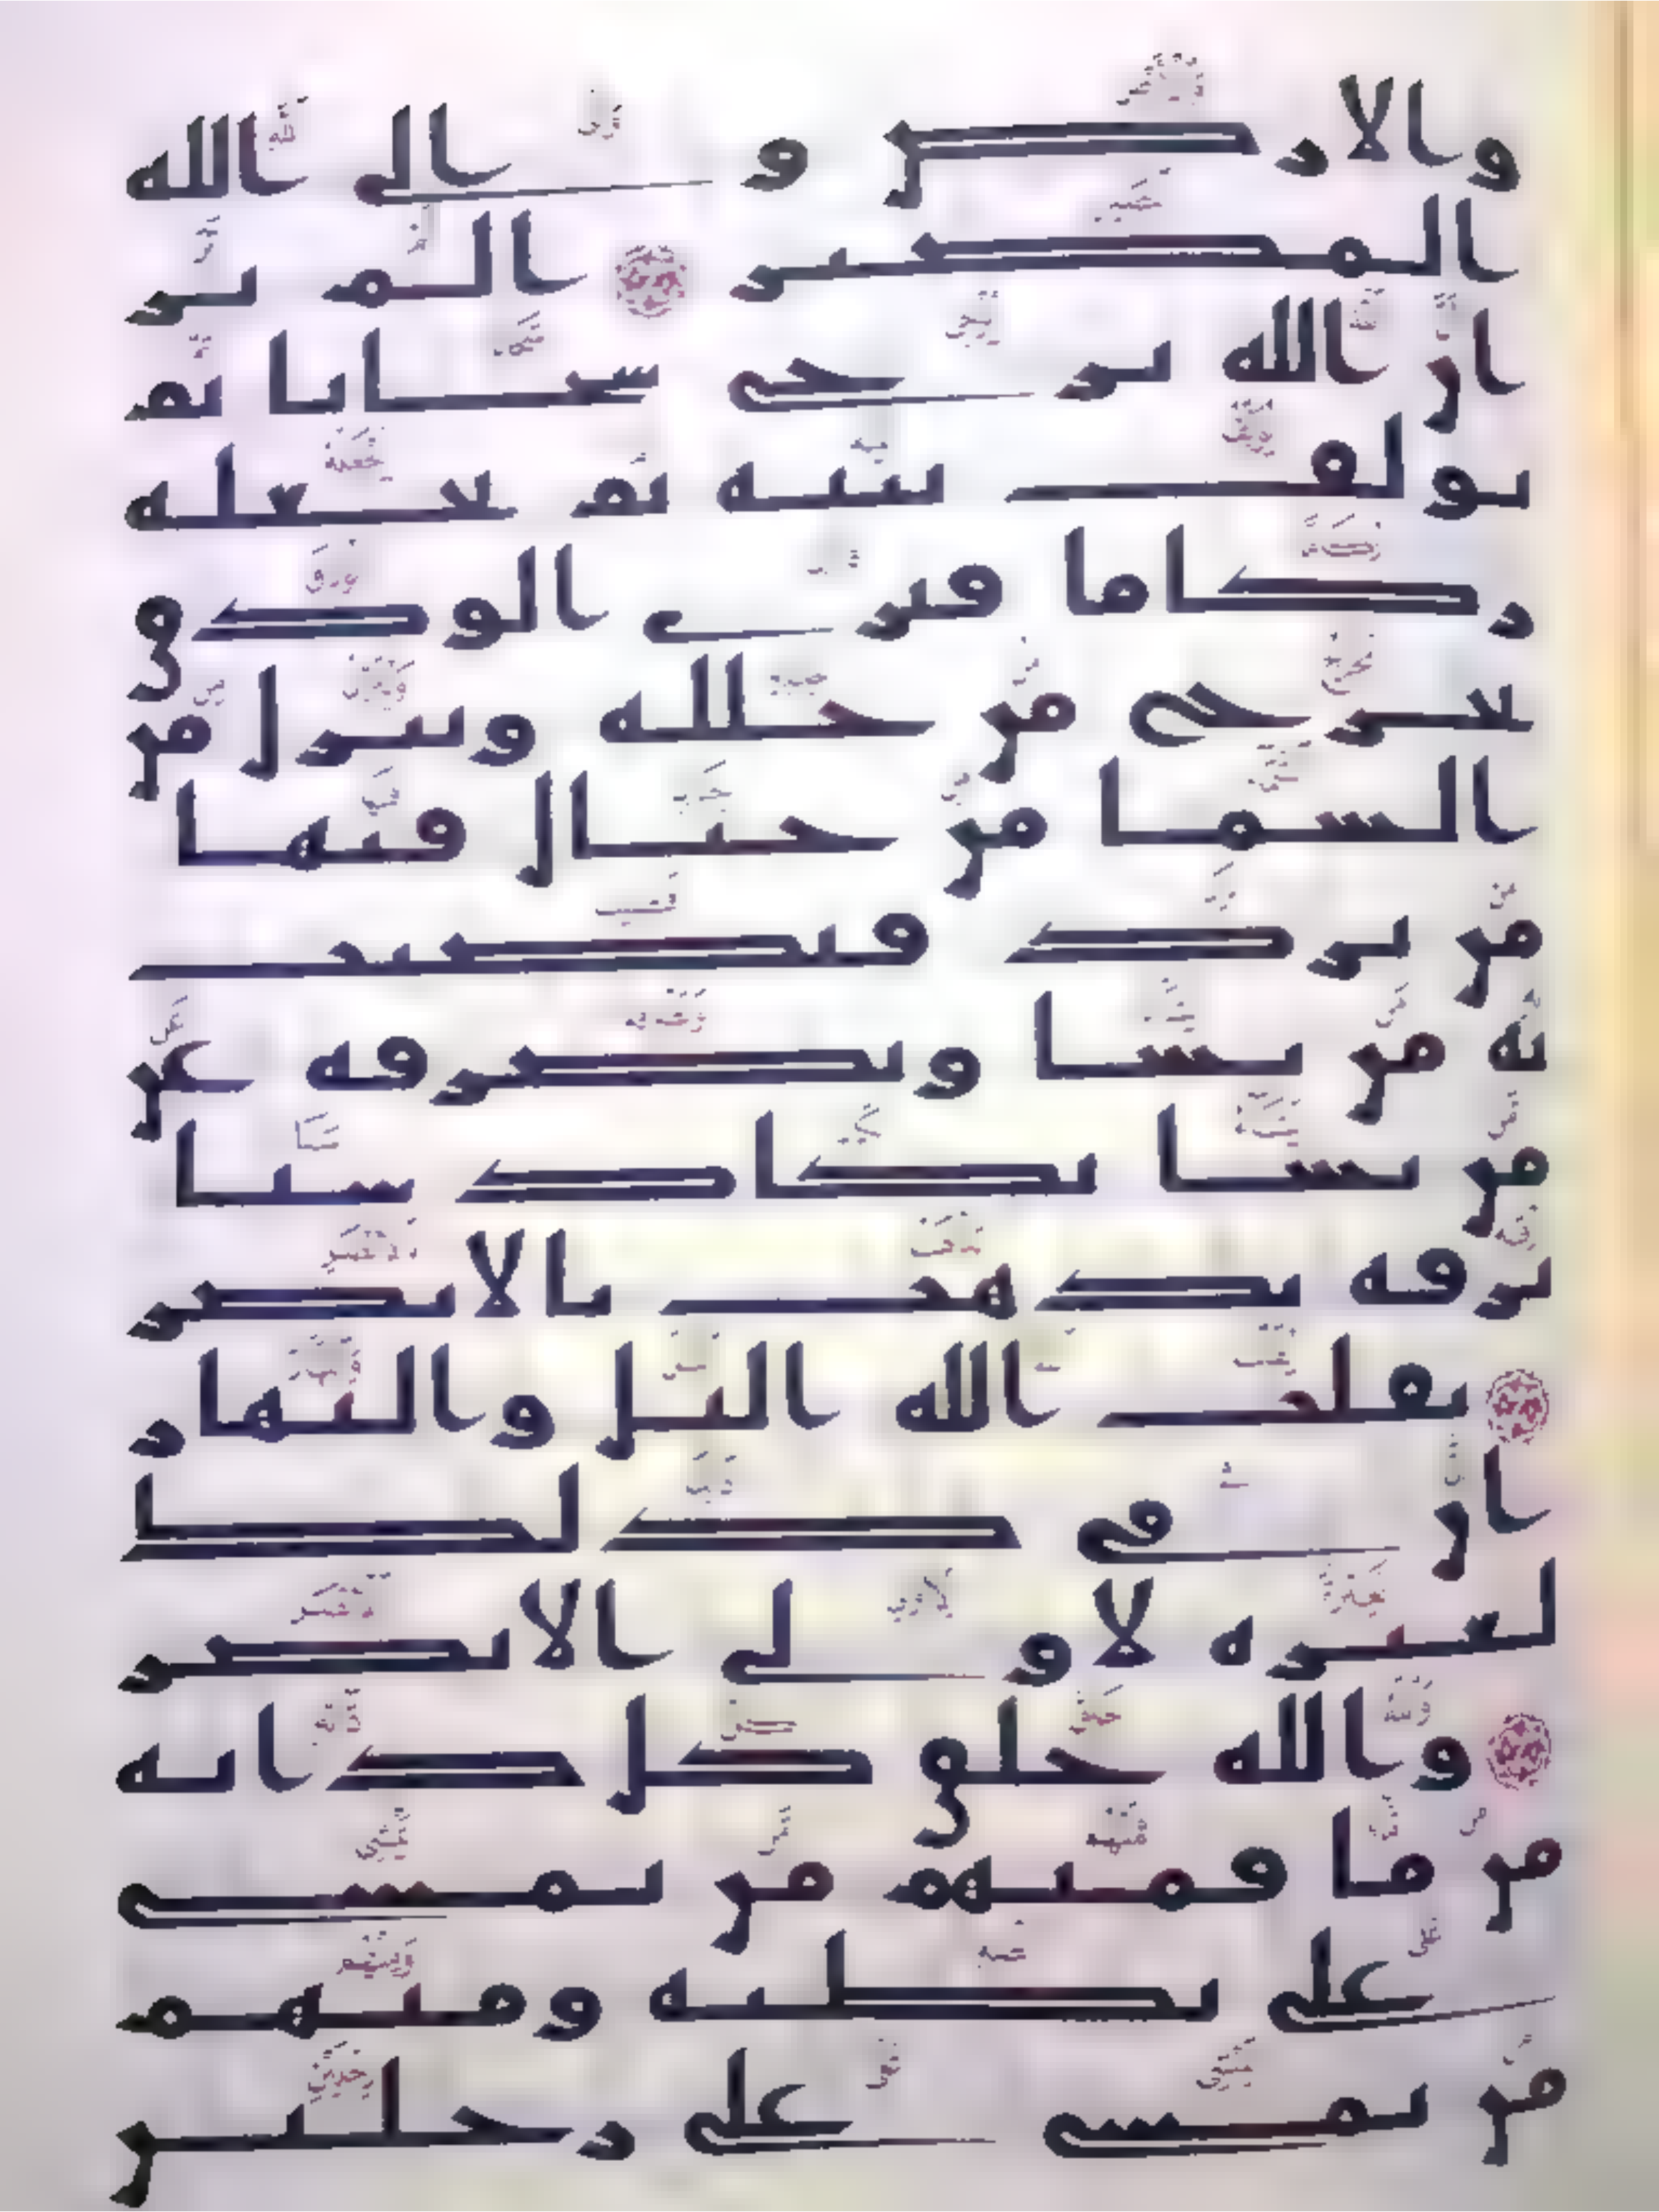 والارض و الى الله
المصير الم تر
ان الله يزجى سحابا ثم
يولف بينه ثم يجعله
ركاما فترى الودق
يخرج من خلله وينزل من
السما من جبال فيها
من برد فيصيب
به من يشا ويصرفه عن
من يشا يكاد سنا
برقه يذهب بالابصر
يقلب الله اليل والنهار
ان فى ذلك
لعبره لاولى الابصر
والله خلق كل دابه
من ما فمنهم من يمشى
على بطنه ومنهم
من يمشى على رجلين